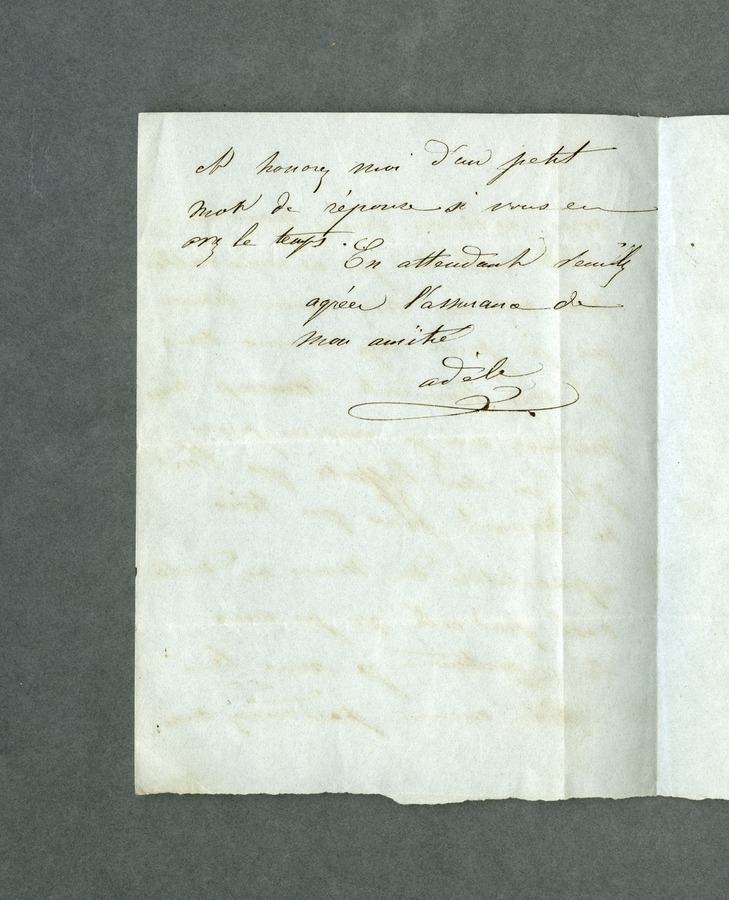 et honorez moi d'un petit
mot de réponse si vous en
avez le temps.
En attendant veuillez
agréer l'assurance de
mon amitié
adèle